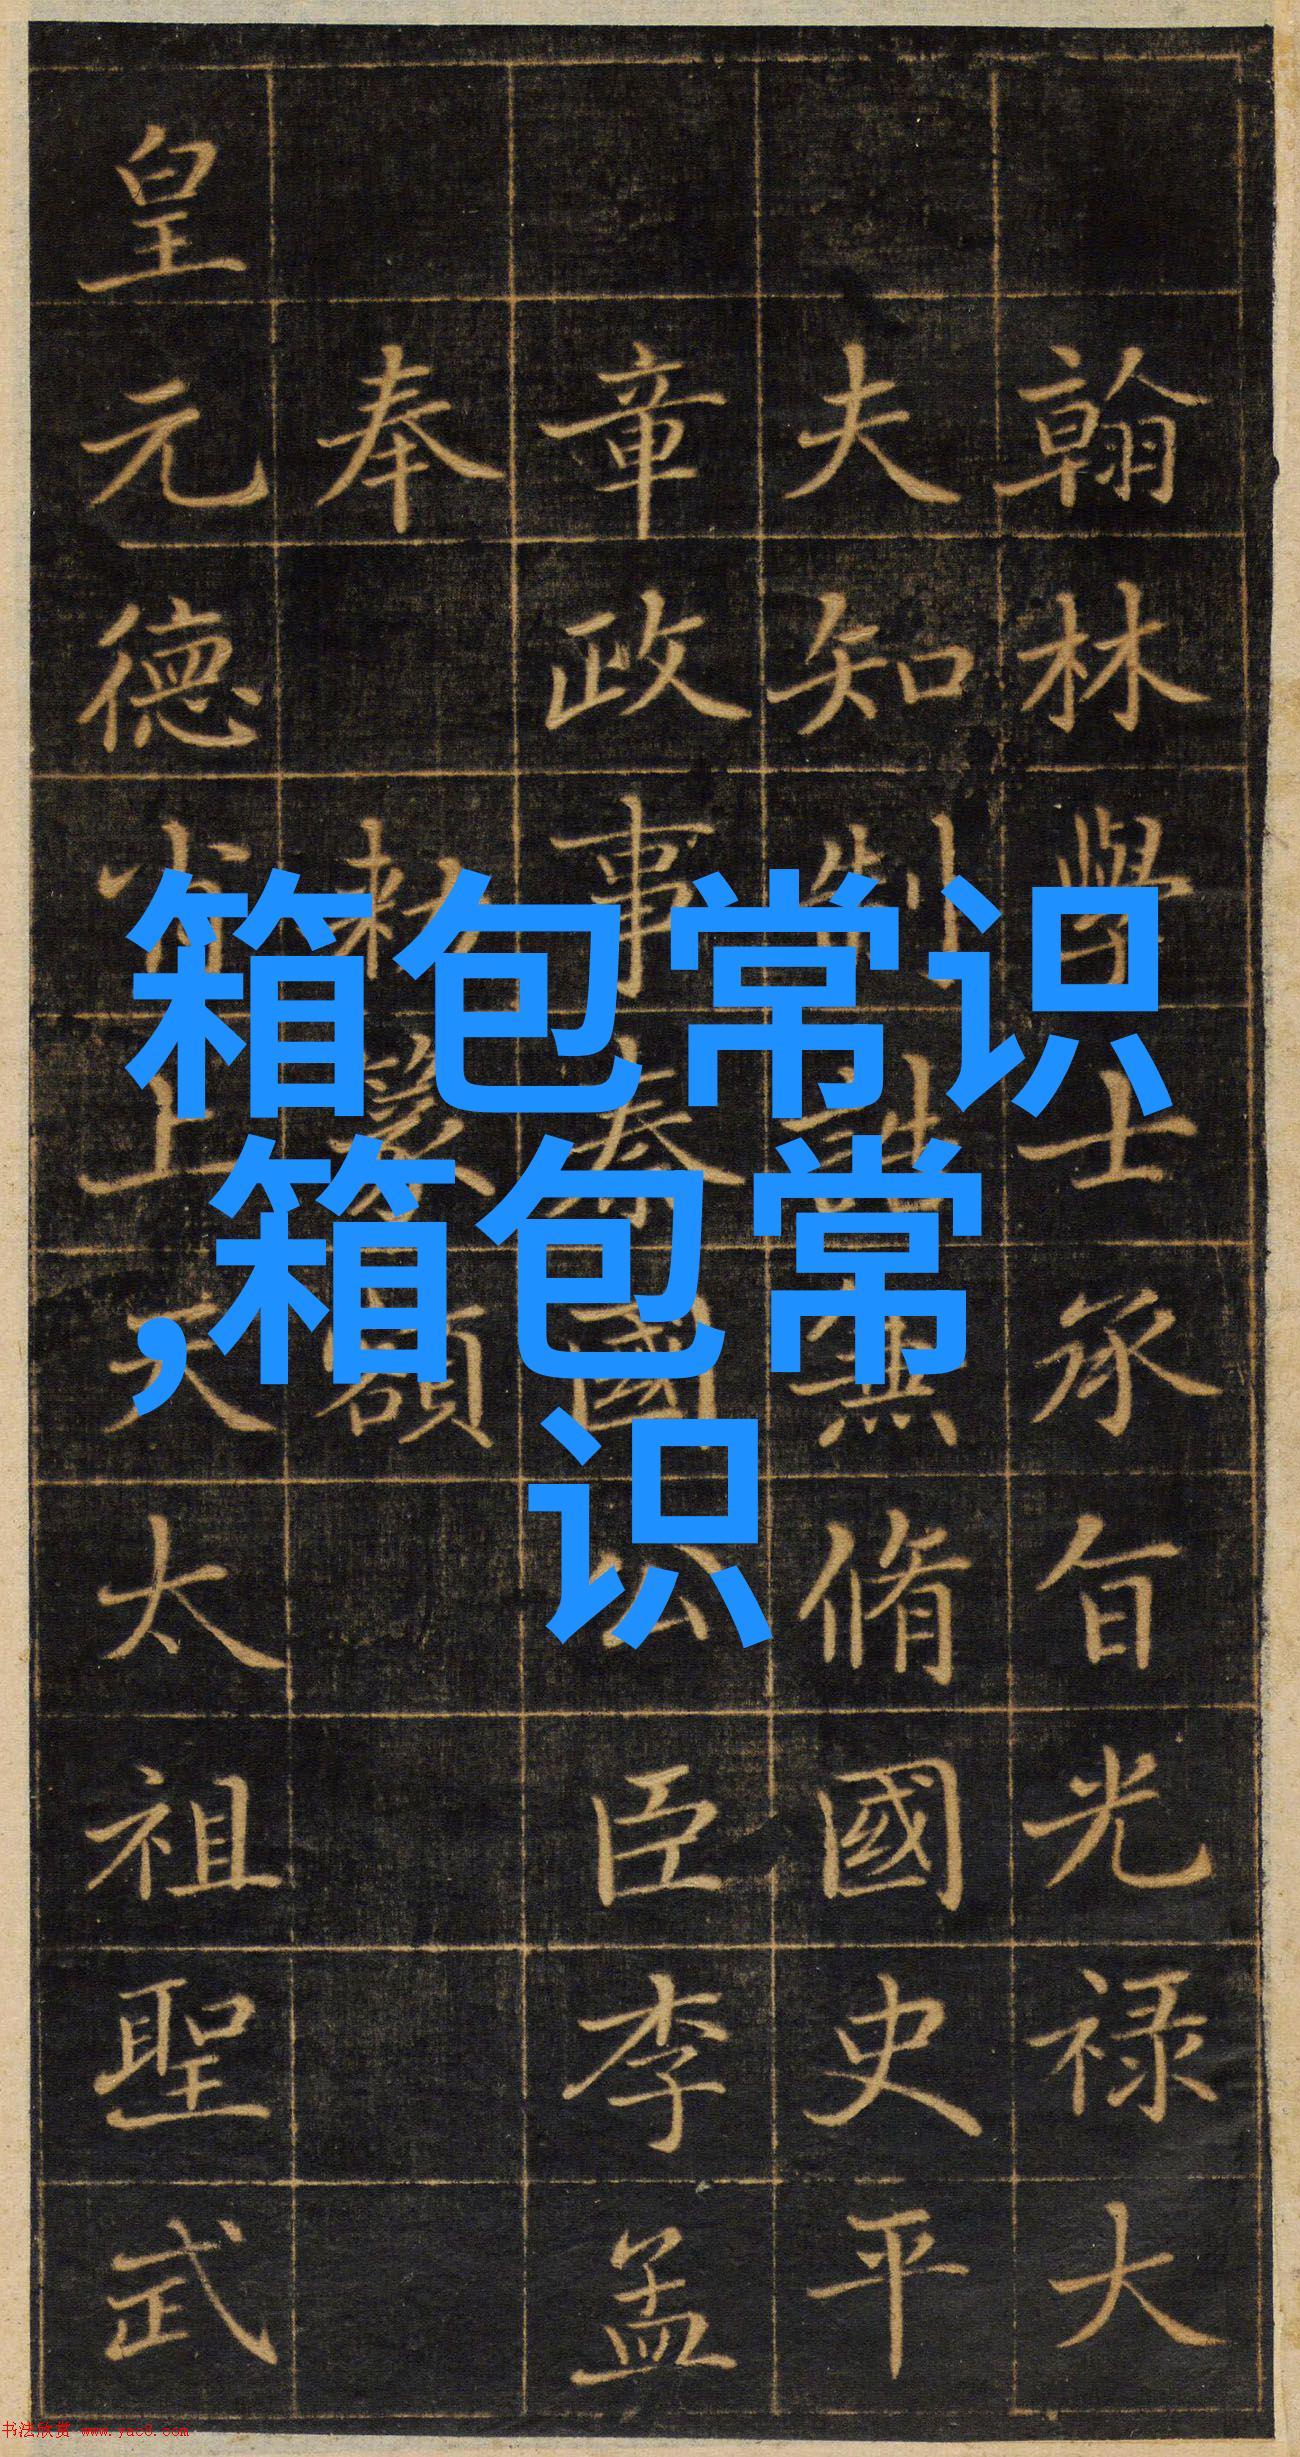 翰林學士承旨光禄大
夫知制誥兼脩國史平
章政事秦國公臣李孟
奉勅篆額
皇元德上天太祖聖武
箱包常识
,箱包常
识
书法欣赏 www.yac8.com